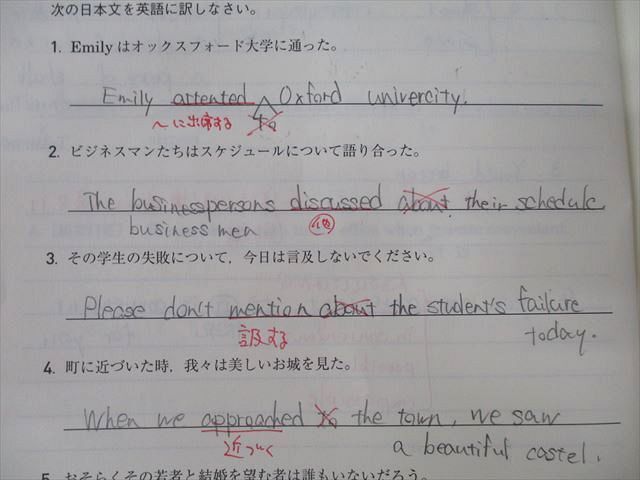 次の日本文を英語に訳しなさい。
1. Emily はオックスフォード大学に通った。
Emily attented to Oxford univercity.
〜に出席する
2. ビジネスマンたちはスケジュールについて語り合った。
The businesspersons discussed about their schedule
business men
3. その学生の失敗について，今日は言及しないでください。
Please don't mention about the student's failure
言及する
today.
4. 町に近づいた時，我々は美しいお城を見た。
When we approached to the town, we saw
近づく
a beautiful castel.
5. おそらくその若者と結婚を望む者は誰もいないだろう。